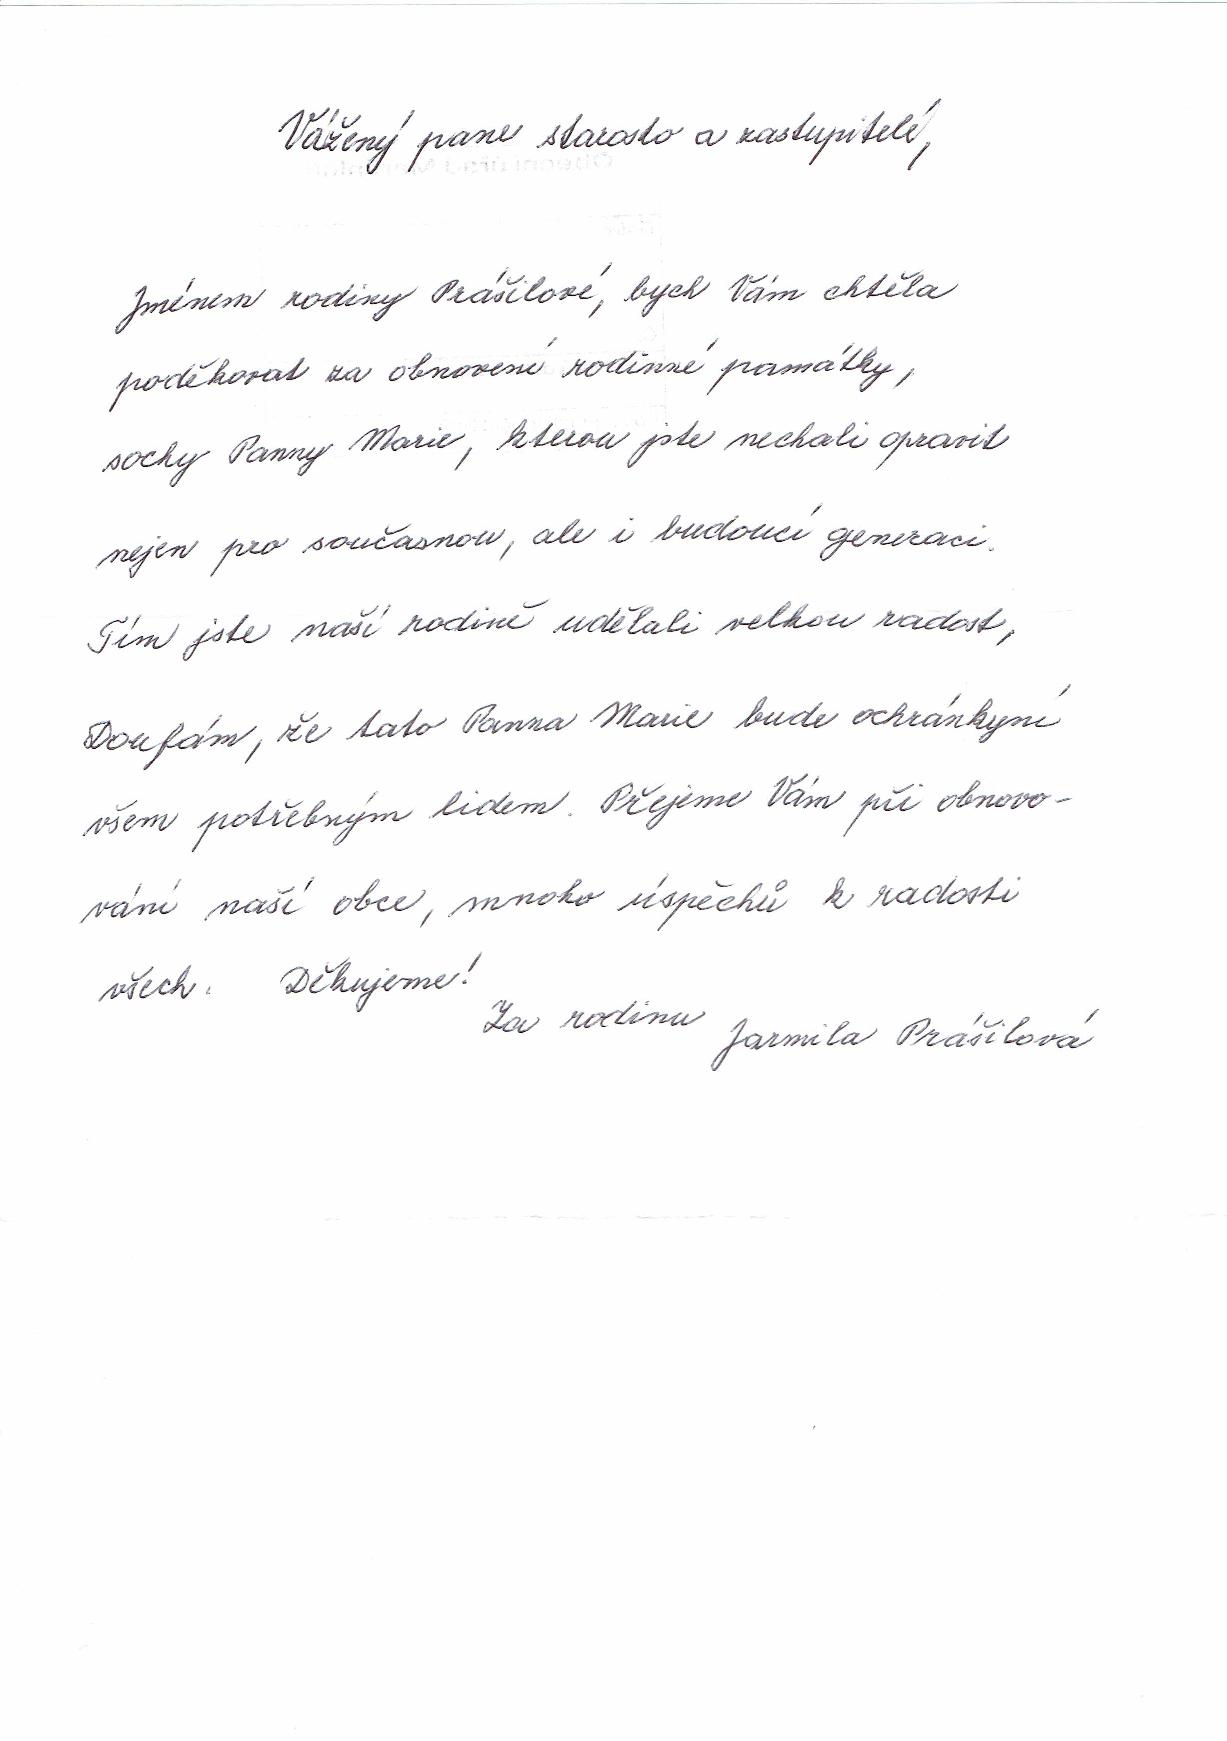 Vážený pane starosto a zastupitelé,
Jménem rodiny Prášilové, bych Vám chtěla
poděkovat za obnovení rodinné památky,
sochy Panny Marie, kterou jste nechali opravit
nejen pro současnou, ale i budoucí generaci.
Tím jste naší rodině udělali velkou radost,
Doufám, že tato Panna Marie bude ochránkyní
všem potřebným lidem. Přejeme Vám při obnovo-
vání naší obce, mnoho úspěchů k radosti
všech. Děkujeme!
Za rodinu Jarmila Prášilová